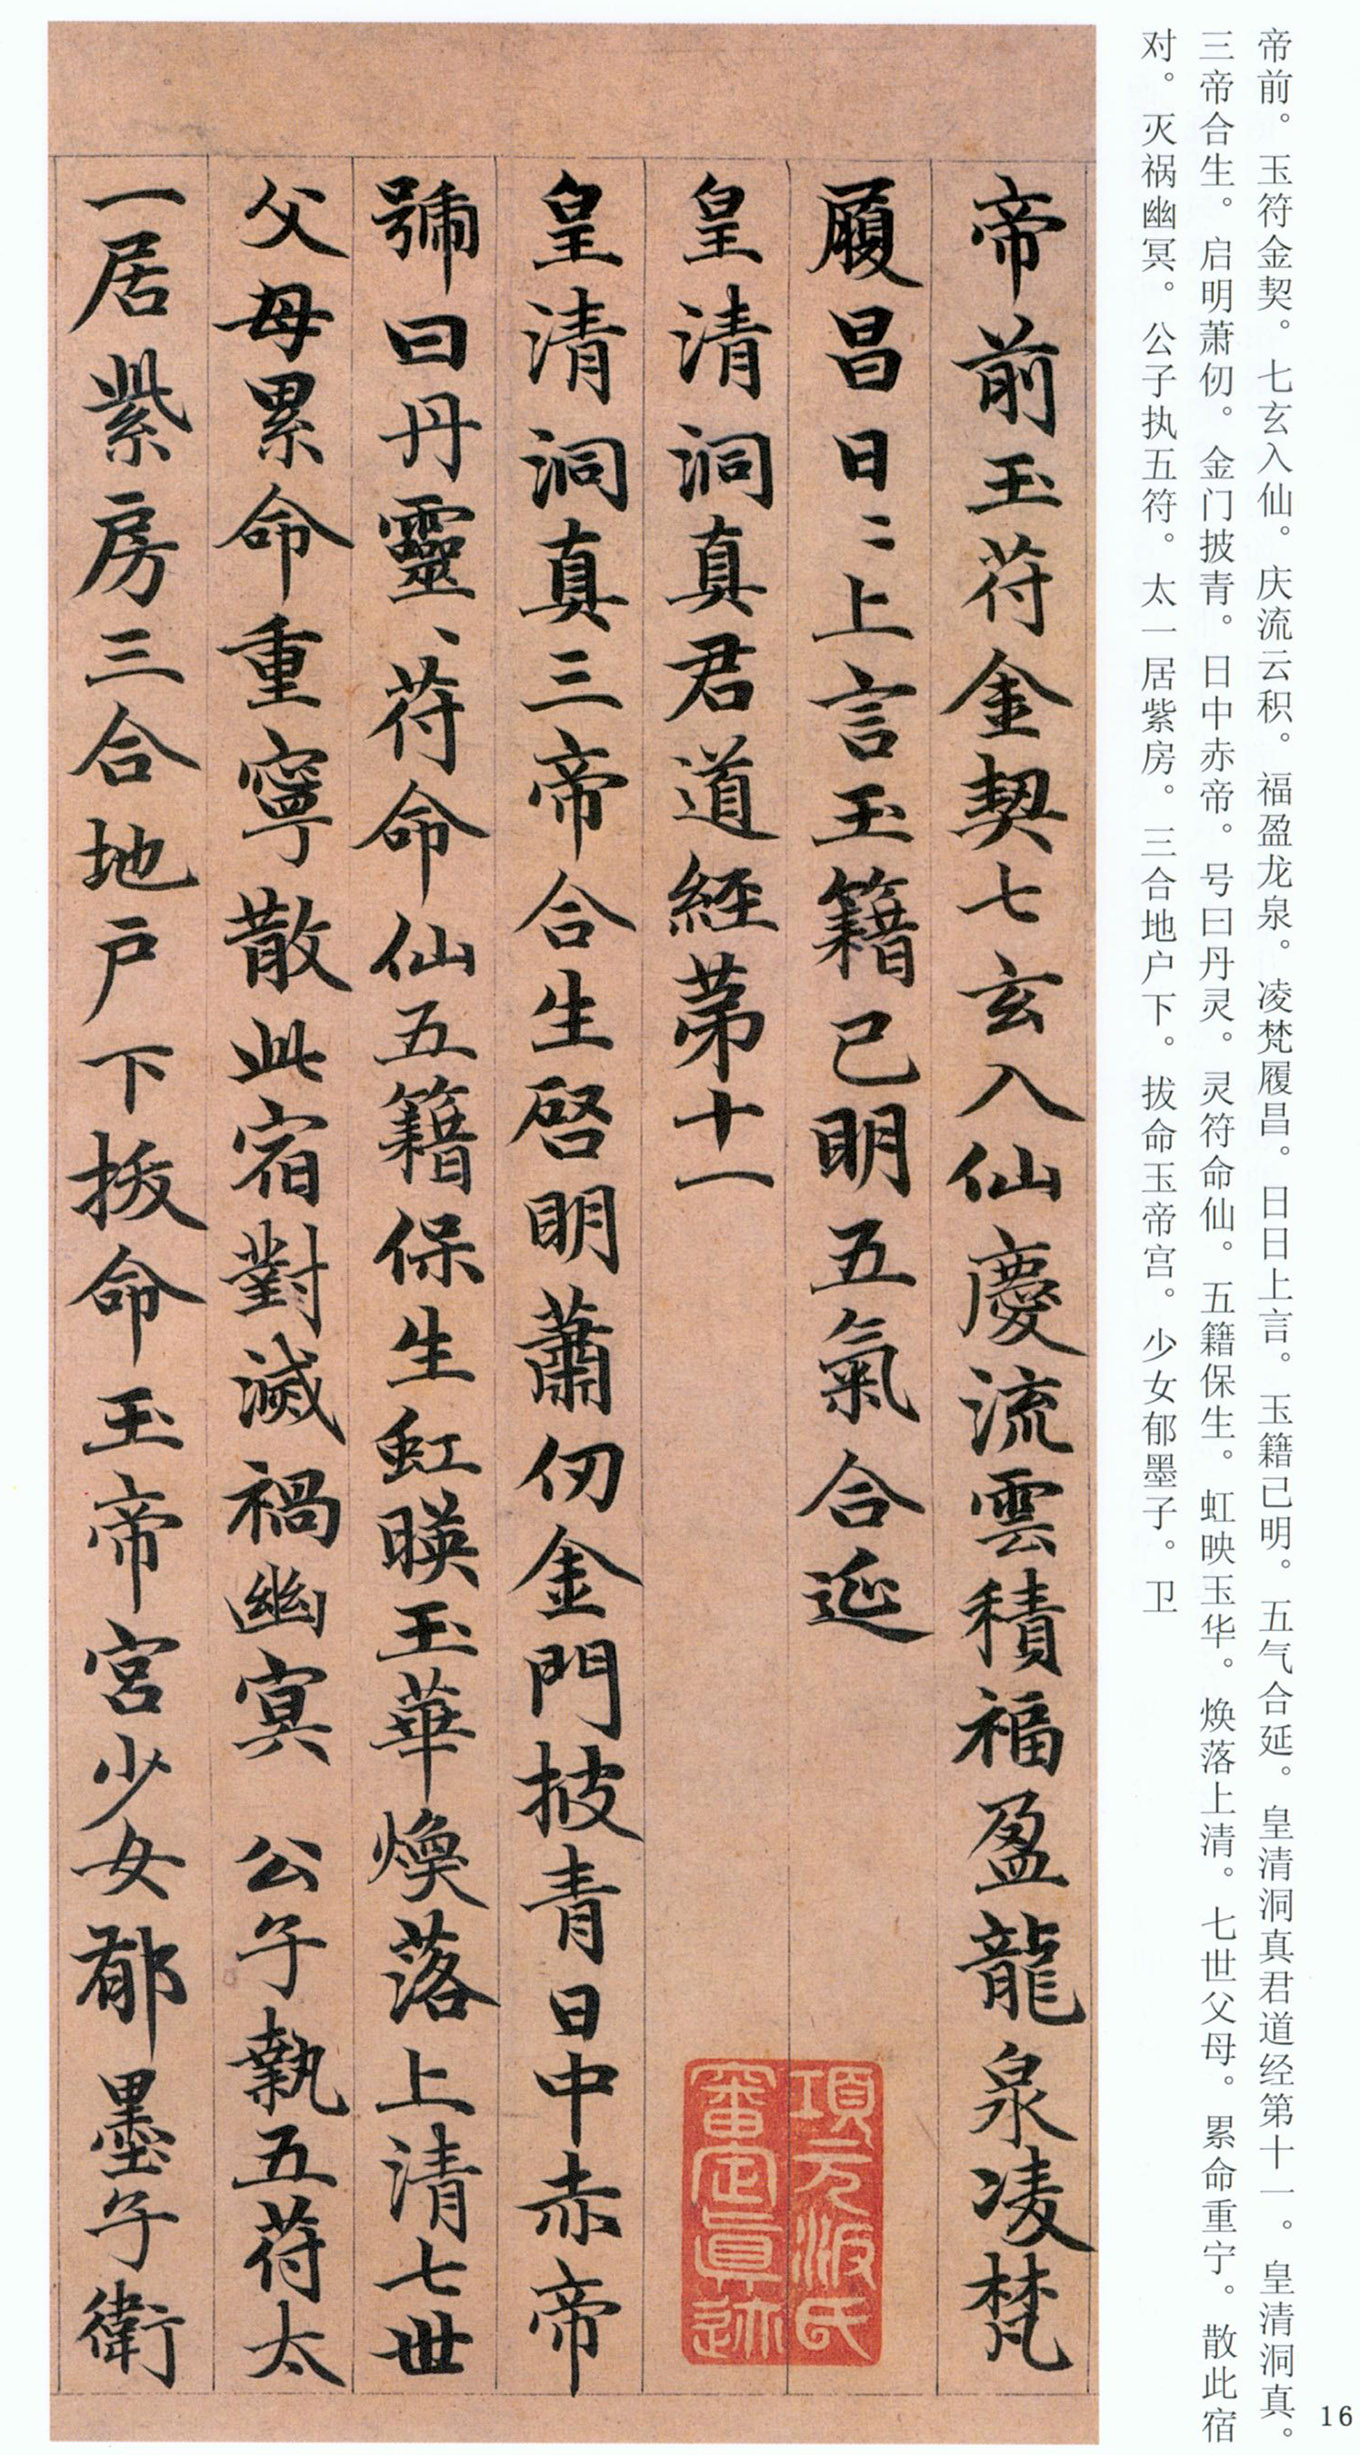 帝前。玉符金契。七玄入仙。庆流云积。福盈龙泉。凌梵履昌。日日上言。玉籍已明。五气合延。皇清洞真君道经第十一。皇清洞真。
三帝合生。启明萧仞。金门披青。日中赤帝。号曰丹灵。灵符命仙。五籍保生。虹映玉华。焕落上清。七世父母。累命重宁。散此宿
对。灭祸幽冥。公子执五符。太一居紫房。三合地户下。拔命玉帝宫。少女郁墨子。卫
帝前玉苻金契七玄入仙慶流雲積福盈龍泉凌梵
履昌日〻上言玉籍已明五氣合延
皇清洞真君道經苐十一
皇清洞真三帝合生啓明蕭仞金門披青日中赤帝
號曰丹靈、苻命仙五籍保生虹暎玉華煥落上清七世
父母累命重寧散此宿對滅禍幽冥 公子執五苻太
一居紫房三合地户下拔命玉帝宮少女郁墨子衛
項元汴氏
審定真迹
16